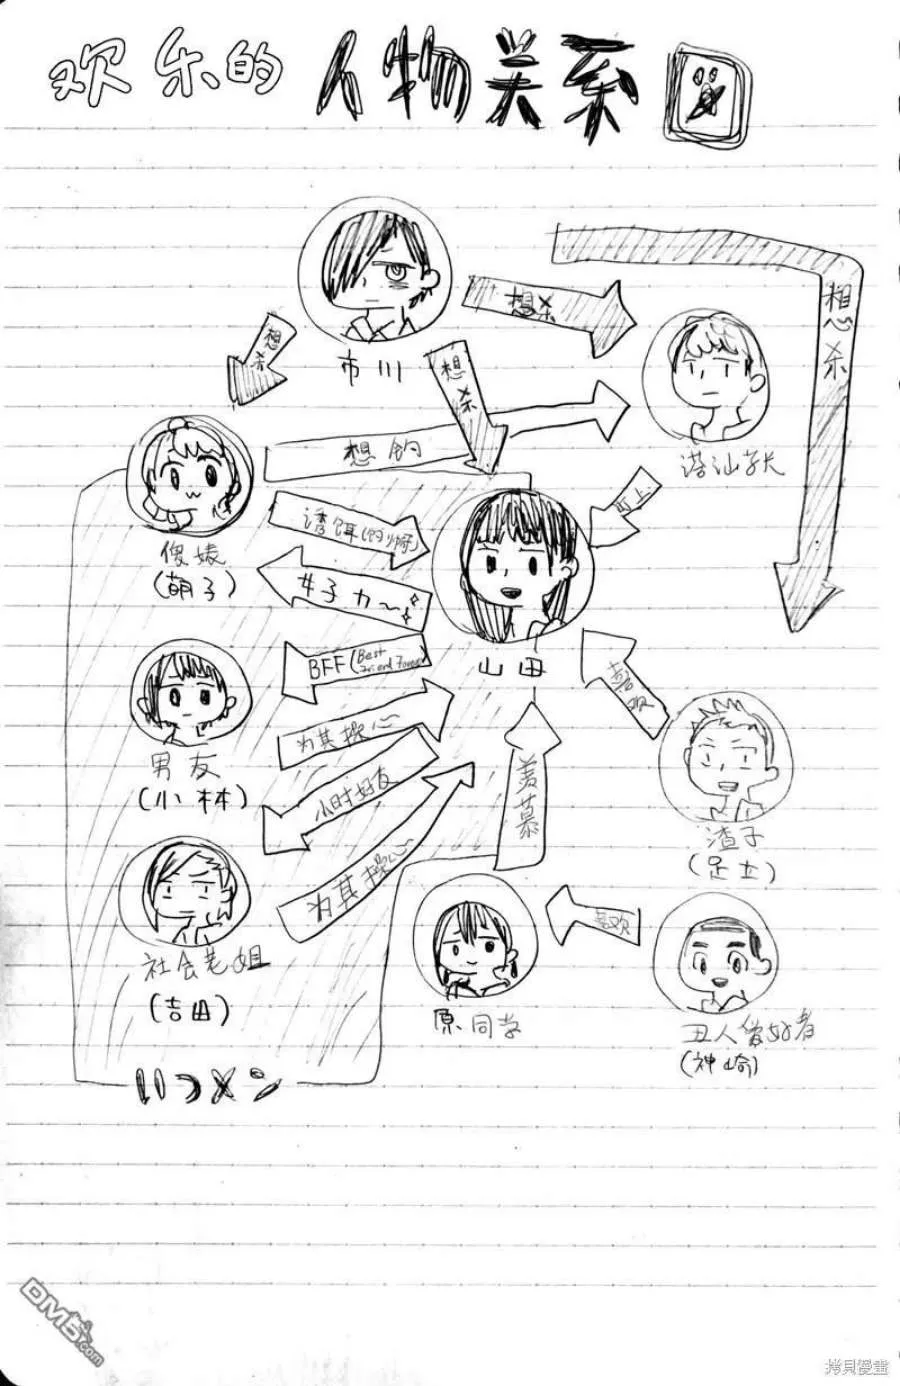 欢乐的人物关系図
想杀
想杀
想杀
想杀
市川
想钓
搭讪学长
盯上
诱饵(的啊)
女子力~
傻婊
(萌子)
山田
BFF(Best
Friend Forever
为其操心
男友
(小林)
小时好友
羡慕
渣子
(足立)
为其操心
社会老姐
(吉田)
喜欢
原同学
丑人爱好者
(神崎)
いつメン
DM5.com
拷貝漫畫